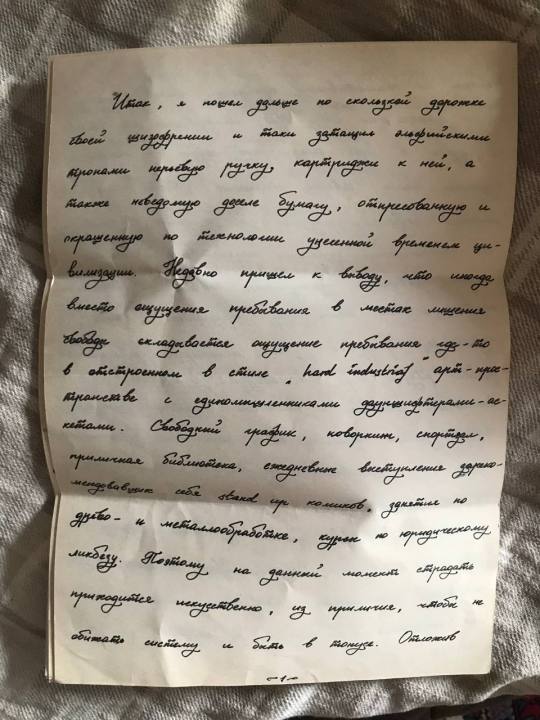 "Итак, я пошел дальше по скользкой дорожке
своей шизофрении и таки затащил эльфийскими
тропами перьевую ручку, картриджи к ней, а
также неведомую доселе бумагу, отпресованную и
окрашенную по технологии унесенной временем ци-
вилизации. Недавно пришел к выводу, что иногда
вместо ощущения пребывания в местах лишения
свободы складывается ощущение пребывания где-то
в отстроенном в стиле "hard industrial" арт-прос-
транстве с единомышленниками дауншифтерами-ас-
кетами. Свободный график, коворкинг, спортзал,
приличная библиотека, ежедневные выступления зареко-
мендовавших себя stand up комиков, занятия по
древо- и металлообработке, курсы по юридическому
ликбезу. Поэтому на данный момент страдать
приходится искуственно, из приличия, чтобы не
обижать систему и быть в тонусе. Отложив
-1-